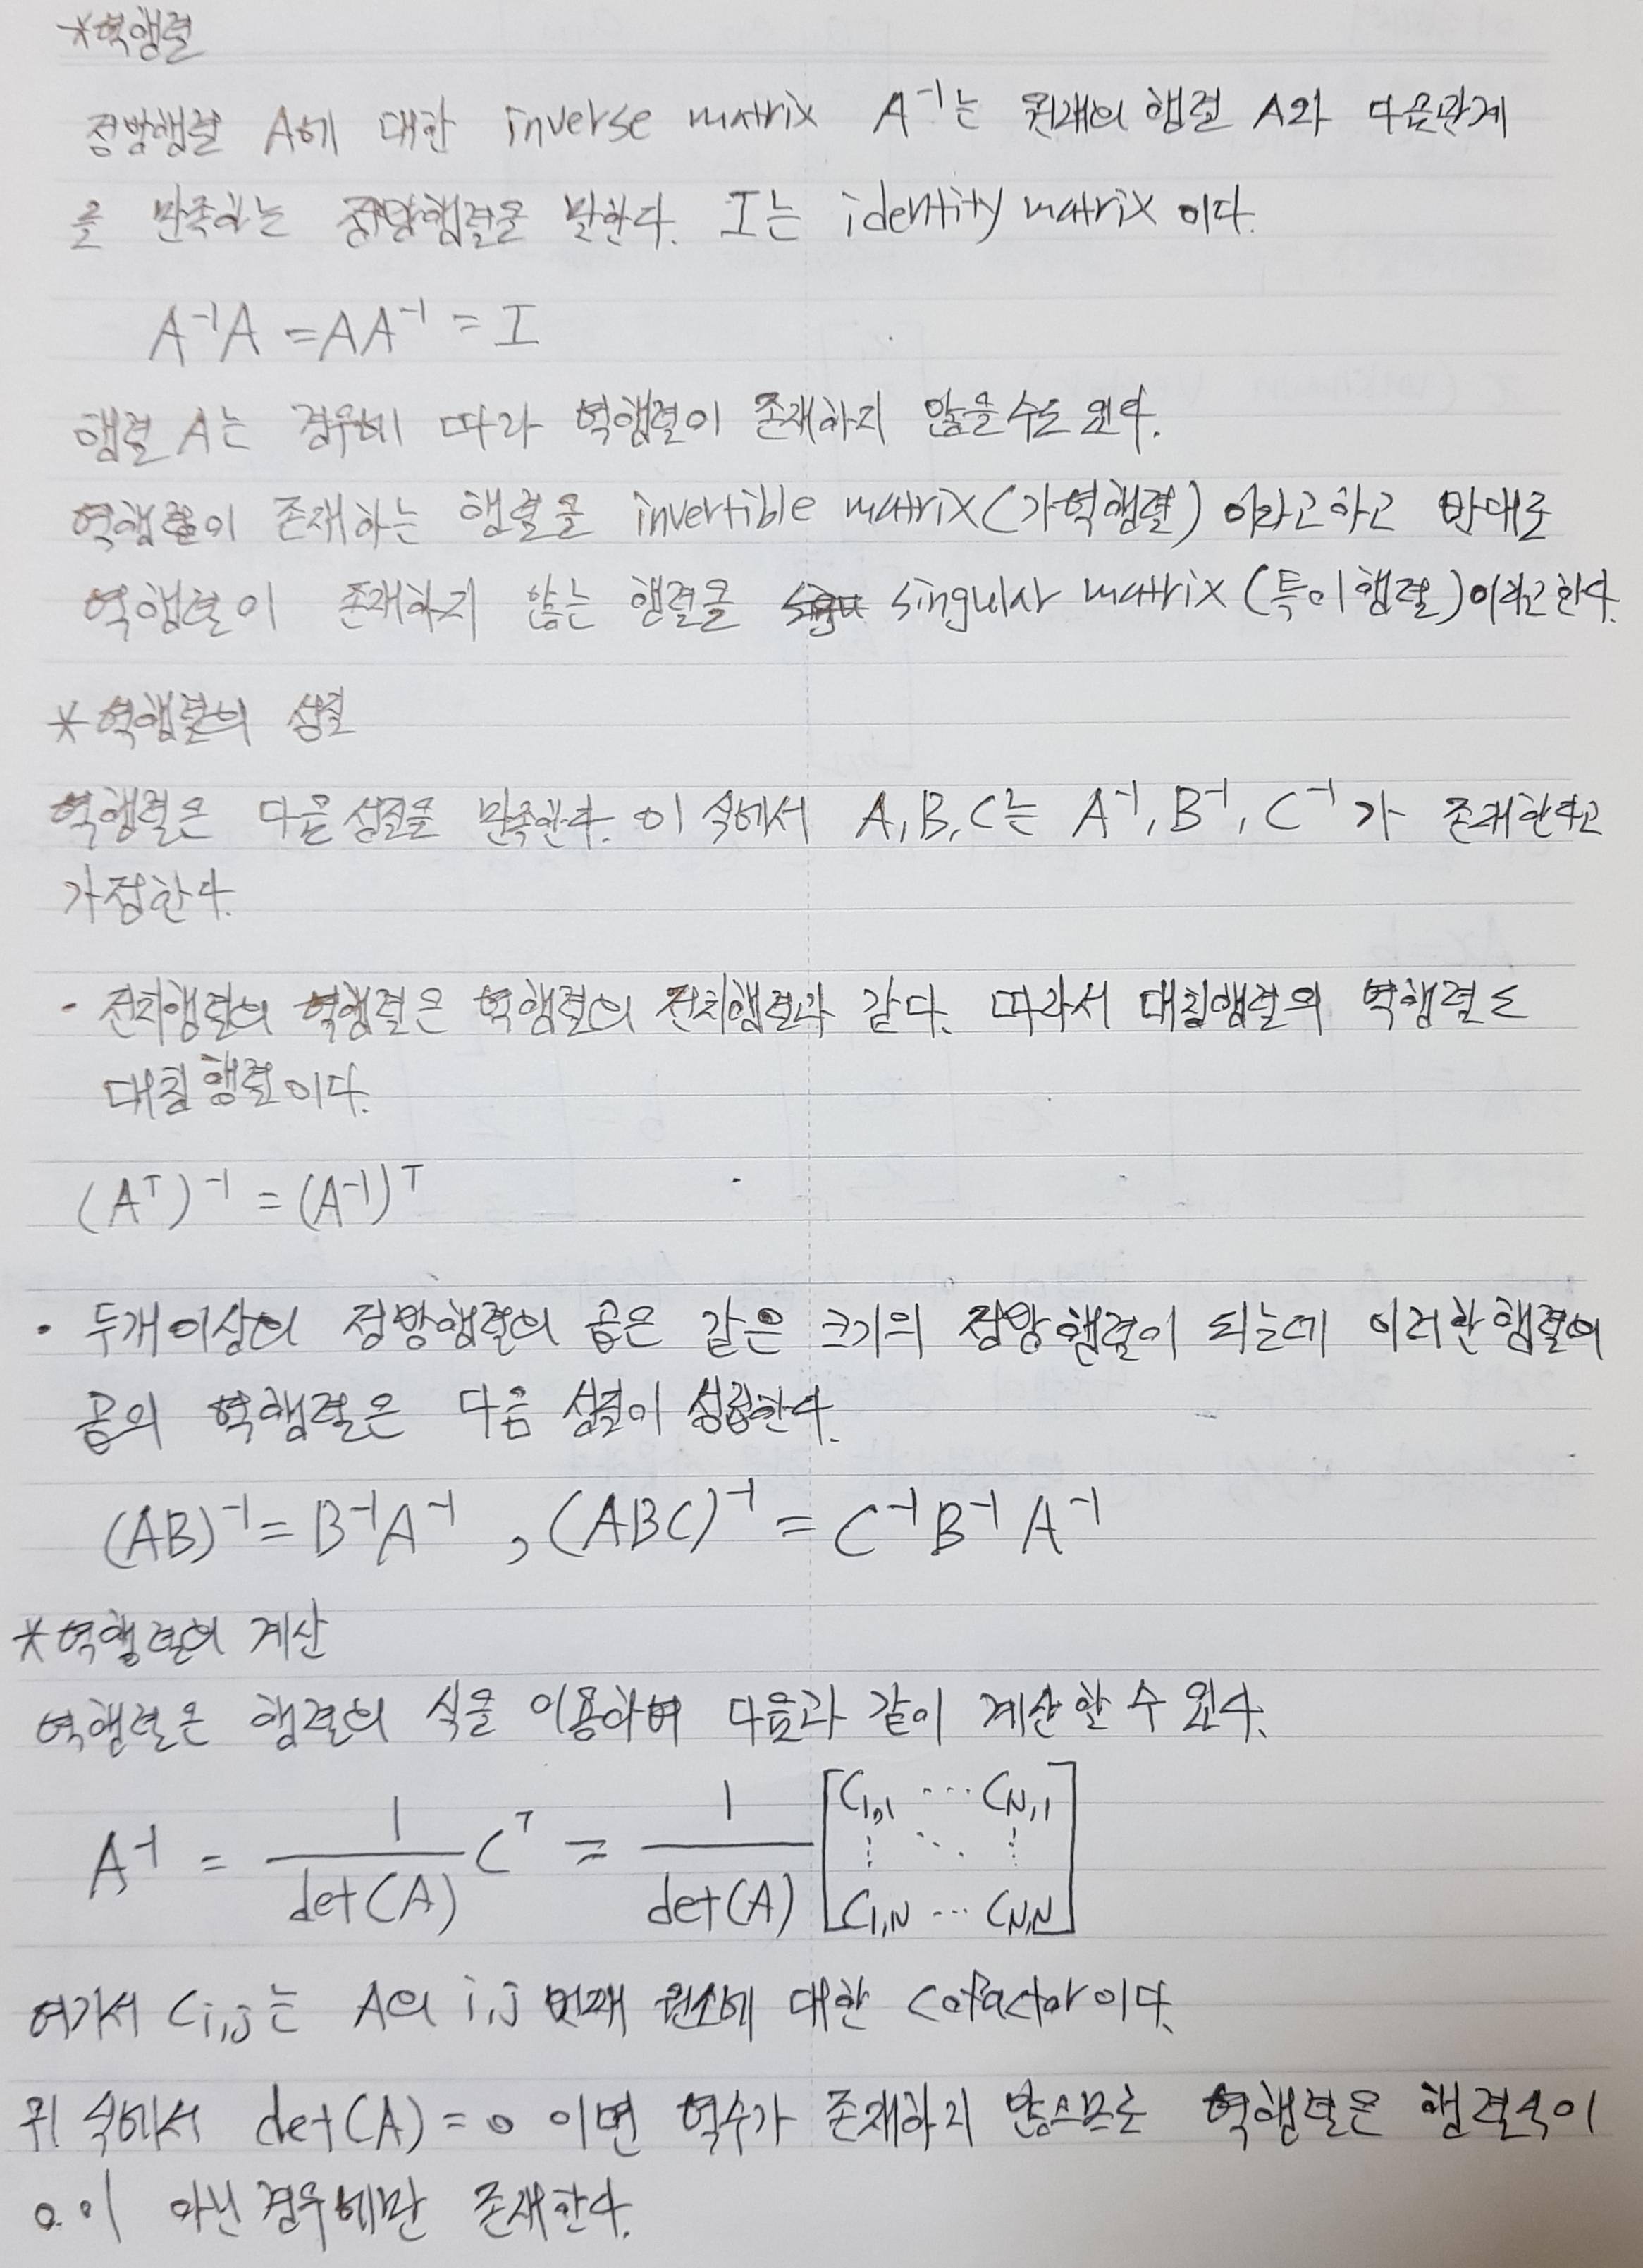 *역행렬
정방행렬 A에 대한 inverse matrix A⁻¹는 원래의 행렬 A와 다음관계
을 만족하는 정방행렬을 말한다. I는 identity matrix 이다.
A⁻¹A = AA⁻¹ = I
행렬 A는 경우에 따라 역행렬이 존재하지 않을수도 있다.
역행렬이 존재하는 행렬을 invertible matrix(가역행렬) 이라고하고 반대로
역행렬이 존재하지 않는 행렬을 singular matrix (특이행렬)이라고한다.
*역행렬의 성질
역행렬은 다음성질을 만족한다. 이 식에서 A, B, C는 A⁻¹, B⁻¹, C⁻¹가 존재한다고
가정한다.
- 전치행렬의 역행렬은 역행렬의 전치행렬과 같다. 따라서 대칭행렬의 역행렬도
대칭행렬이다.
(Aᵀ)⁻¹ = (A⁻¹)ᵀ
• 두개이상의 정방행렬의 곱은 같은 크기의 정방행렬이 되는데 이러한행렬의
곱의 역행렬은 다음 성질이 성립한다.
(AB)⁻¹ = B⁻¹A⁻¹ , (ABC)⁻¹ = C⁻¹B⁻¹A⁻¹
*역행렬의 계산
역행렬은 행렬의 식을 이용하여 다음과 같이 계산할 수 있다.
A⁻¹ = 1/det(A) Cᵀ = 1/det(A) [C1,1 ··· CN,1
⋮ ⋱ ⋮
C1,N ··· CN,N]
여기서 Ci,j는 A의 i,j 번째 원소에 대한 cofactor이다.
위 식에서 det(A) = 0 이면 역수가 존재하지 않으므로 역행렬은 행렬식이
0.이 아닌경우에만 존재한다.